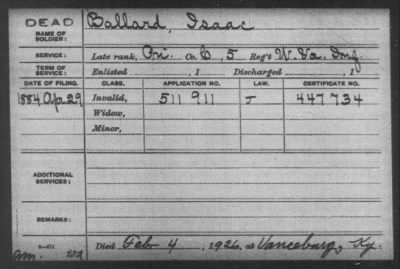 DEAD
NAME OF SOLDIER:
Ballard, Isaac
SERVICE:
Late rank, Pri. Co. C, 5 Reg't W. Va. Inf.
TERM OF SERVICE:
Enlisted , 1 Discharged , 1
DATE OF FILING. CLASS. APPLICATION NO. LAW. CERTIFICATE NO.
1884 Apr 29 Invalid, 511 911 J 447 734
Widow,
Minor,
ADDITIONAL SERVICES:
REMARKS:
Died Feb 4, 1926, at Vanceburg, Ky.